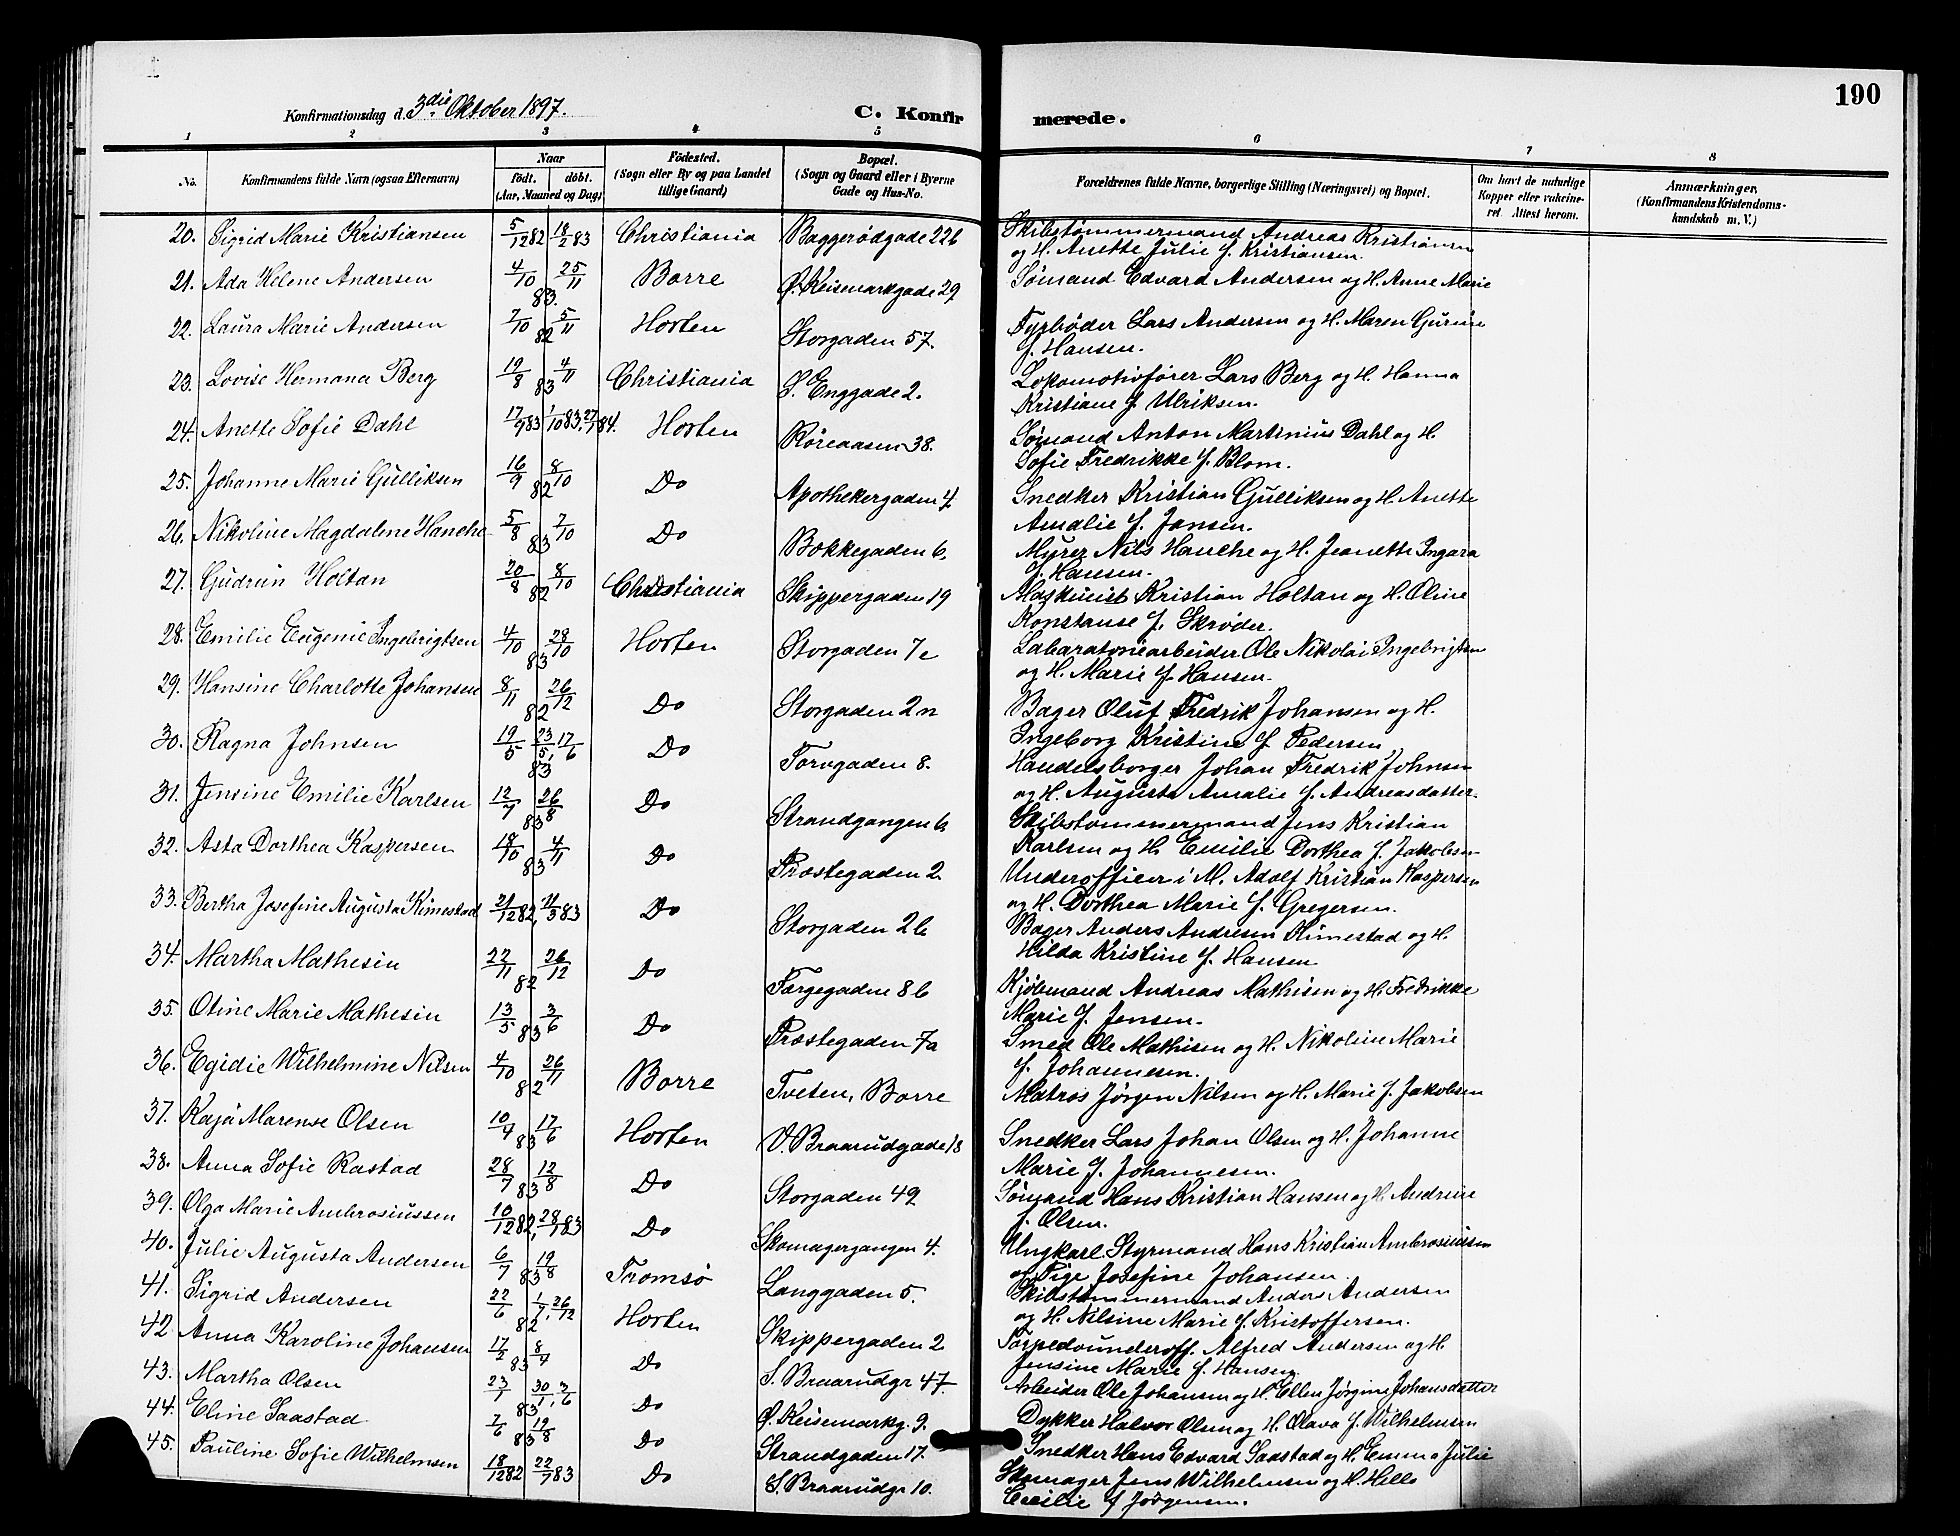 190
Konfirmationsdag d. 3die Oktober 1897.
C. Konfirmerede.
1 2 3 4 5 6 7 8
No.
Konfirmandens fulde Navn (ogsaa Efternavn)
Naar
født. døbt.
(Aar, Maaned og Dag)
Födested.
(Sogn eller By og paa Landet
tillige Gaard)
Bopæl.
(Sogn og Gaard eller i Byerne
Gade og Hus-No.
Forældrenes fulde Navne, borgerlige Stilling (Næringsvei) og Bopæl.
Om havt de naturlige
Kopper eller vakcine-
ret. Attest herom.
Anmærkninger.
(Konfirmandens Kristendoms-
kundskab m. V.)
20. Sigrid Marie Kristiansen 5/12 82 18/2 83 Christiania Baggerødgade 22b Skibstømmermand Andreas Kristiansen
og H. Anette Julie f. Kristiansen.
21. Ada Helene Andersen 4/10 25/11 83. Borre Ø. Keisemarkgade 29 Sømand Edvard Andersen og H. Anne Marie
22. Laura Marie Andersen 7/10 5/11 82 Horten Storgaden 57. Fyrbøder Lars Andersen og H. Maren Gurine
f. Hansen.
23. Lovise Hermana Berg 19/8 4/11 83 Christiania S. Enggade 2. Lokomotivfører Lars Berg og H. Hanna
Kristiane f. Ulriksen.
24. Anette Sofie Dahl 17/9 83 1/10 83, 27/1 84. Horten Røreaasen 38. Sømand Anton Martinius Dahl og H.
Sofie Fredrikke f. Blom.
25. Johanne Marie Gulliksen 16/9 8/10 82 Do Apothekergaden 4. Snedker Kristian Gulliksen og H. Anette
Amalie f. Jansen.
26. Nikoline Magdalene Hanche 5/8 7/10 83 Do Bekkegaden 6. Myrer Nils Hanche og H. Jeanette Ingara
f. Hansen.
27. Gudrun Holtan 20/8 8/10 82 Christiania Skippergaden 19 Maskinist Kristian Holtan og H. Oline
Konstanse f. Skrøder.
28. Emilie Eugenie Ingebrigtsen 4/10 28/10 83 Horten Storgaden 7e Labaratoriearbeider Ole Nikolai Ingebrigtsen
og H. Marie f. Hansen.
29. Hansine Charlotte Johansen 8/11 26/12 82 Do Storgaden 2n Bager Oluf Fredrik Johansen og H.
Ingeborg Kristine f. Pedersen
30. Ragna Johnsen 19/5 23/5, 17/6 83 Do Torvgaden 8. Handelsborger Johan Fredrik Johnsen
og H. Augusta Amalie f. Andreasdatter.
31. Jensine Emilie Karlsen 12/7 26/8 83 Do Strandgangen 6 Skibstømmermand Jens Kristian
Karlsen og H. Emilie Dorthea f. Jakobsen
32. Asta Dorthea Kaspersen 18/10 4/11 83 Do Præstegaden 2 Underofficer i M. Adolf Kristian Kaspersen
og H. Dorthea Marie f. Gregersen.
33. Bertha Josefine Augusta Kimestad 21/12 82, 11/3 83 Do Storgaden 2b Bager Anders Andresen Kimestad og H.
Hilda Kristine f. Hansen
34. Martha Mathesin 22/11 26/12 82 Do Færgegaden 8b Kjøbmand Andreas Mathisen og H. Fredrikke
Marie f. Jensen.
35. Oline Marie Mathesin 13/5 3/6 83 Do Præstegaden 7a Smed Ole Mathisen og H. Nikoline Marie
f. Johannesen.
36. Egidie Wilhelmine Nilsen 4/10 26/11 82 Borre Tveten, Borre Matros Jørgen Nilsen og H. Marie f. Jakobsen
37. Kaja Marense Olsen 10/4 17/6 83 Horten V. Braarudgade 18 Snedker Lars Johan Olsen og H. Johanne
Marie f. Johannesen.
38. Anna Sofie Rastad 28/7 12/8 83 Do Storgaden 49 Sømand Hans Kristian Hansen og H. Andrine
f. Olsen.
39. Olga Marie Ambrosiussen 10/12 82, 28/1 83 Do Skomagergangen 4. Ungkarl Styrmand Hans Kristian Ambrosiussen
og Pige Josefine Johansen.
40. Julie Augusta Andersen 6/7 19/8 83 Tromsø Langgaden 5. Skibstømmermand Anders Andersen
og H. Nilsine Marie f. Kristoffersen.
41. Sigrid Andersen 22/6 1/7, 26/12 82 Horten Skippergaden 2 Torpedounderoff. Alfred Andersen og H.
Jensine Marie f. Hansen.
42. Anna Karoline Johansen 17/2 8/4 83 Do S. Braarudgr 47. Arbeider Ole Johansen og H. Ellen Jørgine Johansdatter
43. Martha Olsen 23/1 30/1, 3/6 83 Do Ø. Keisemarkg. 9. Dykker Halvor Olsen og H. Olava f. Wilhelmsen
44. Eline Saastad 7/6 19/8 83 Do Strandgaden 17. Snedker Hans Edvard Saastad og H. Emma Julie
45. Pauline Sofie Wilhelmsen 18/12 82 22/7 83 Do S. Braarudgr 10. Skomager Jens Wilhelmsen og H. Helle
Cecilie f. Jørgensen.